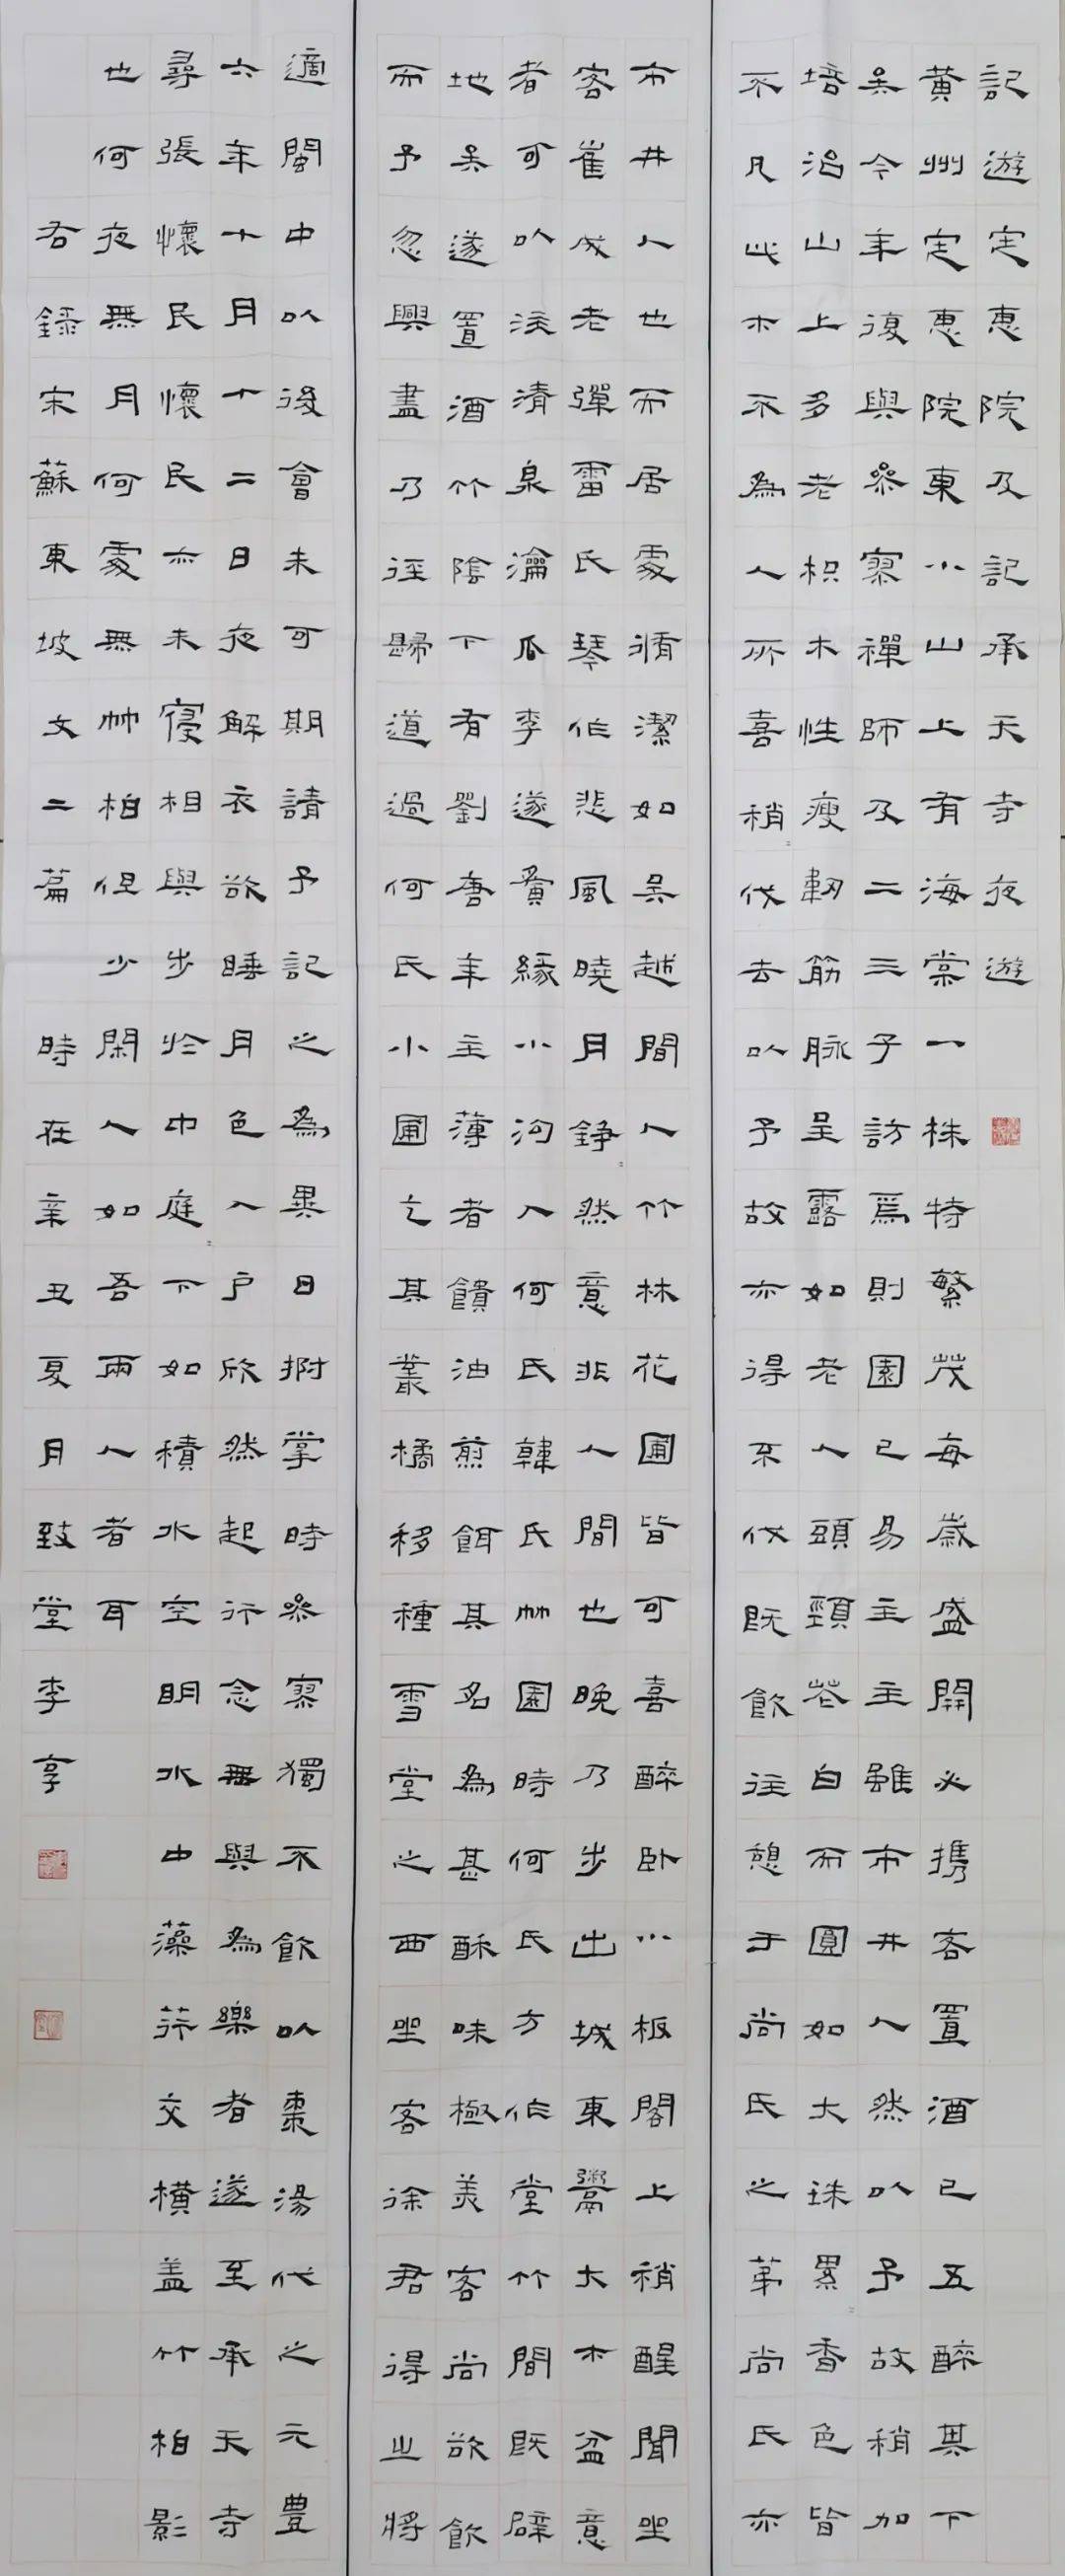 記遊定惠院及記承天寺夜遊
黃州定惠院東小山上有海棠一株特繁茂每歲盛開必携客置酒已五醉其下
矣今年復與參寥禪師及二三子訪焉則園已易主主雖市井人然以予故稍加
培治山上多老枳木性瘦韌筋脉呈露如老人頭頸花白而圓如大珠累香色皆
不凡此木不為人所喜稍伐去以予故亦得不伐既飲往憩于尚氏之第尚氏亦
市井人也而居處脩潔如吴越間人竹林花圃皆可喜醉卧小板閣上稍醒聞坐
客崔成老彈雷氏琴作悲風曉月錚然意非人間也晚乃步出城東鬻大木盆意
者可以注清泉瀹瓜李遂夤緣小沟入何氏韓氏竹園時何氏方作堂竹間既辟
地矣遂置酒竹陰下有劉唐年主薄者饋油煎餌其名為甚酥味極美客尚欲飲
而予忽興盡乃徑歸道過何氏小圃乞其叢橘移種雪堂之西坐客徐君得之將
適閩中以後會未可期請予記之為異日拊掌時參寥獨不飲以棗湯代之元豊
六年十月十二日夜解衣欲睡月色入户欣然起行念無與為樂者遂至承天寺
尋張懷民懷民亦未寢相與步於中庭下如積水空明水中藻荇交横盖竹柏影
也何夜無月何處無竹柏但少閑人如吾兩人者耳
右録宋蘇東坡文二篇 時在辛丑夏月致堂李享